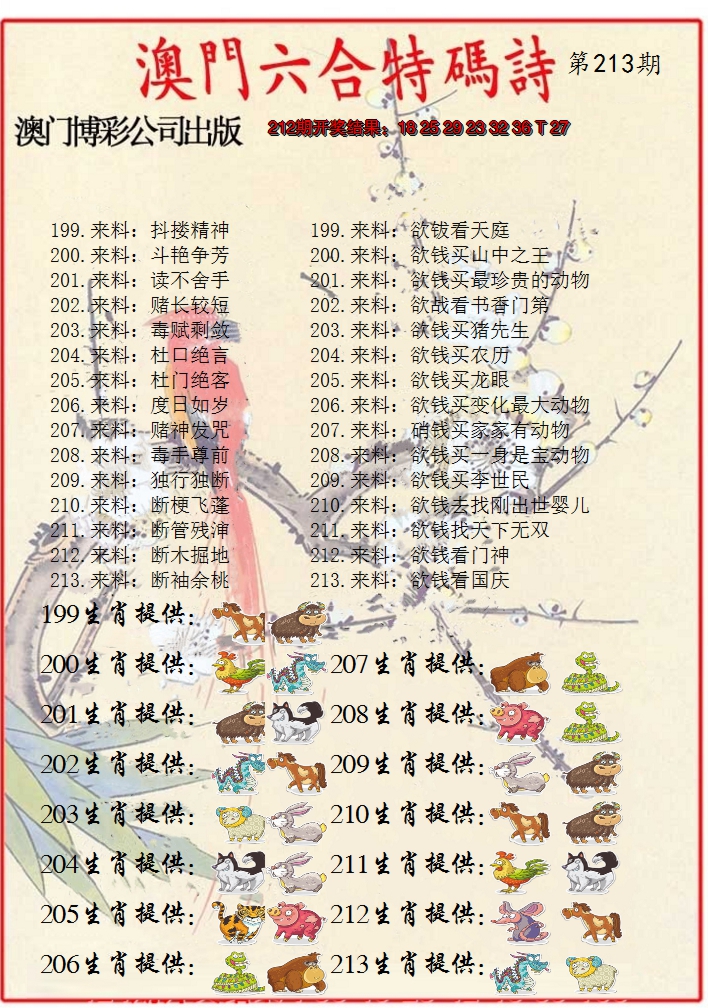 澳門六合特碼詩 第213期
澳门博彩公司出版 212期开奖结果：18 25 29 23 32 36 T 27
199.来料：抖搂精神 199.来料：欲钱看天庭
200.来料：斗艳争芳 200.来料：欲钱买山中之王
201.来料：读不舍手 201.来料：欲钱买最珍贵的动物
202.来料：赌长较短 202.来料：欲战看书香门第
203.来料：毒赋剩敛 203.来料：欲钱买猪先生
204.来料：杜口绝言 204.来料：欲钱买农历
205.来料：杜门绝客 205.来料：欲钱买龙眼
206.来料：度日如岁 206.来料：欲钱买变化最大动物
207.来料：赌神发咒 207.来料：硝钱买家家有动物
208.来料：毒手尊前 208.来料：欲钱买一身是宝动物
209.来料：独行独断 209.来料：欲钱买李世民
210.来料：断梗飞蓬 210.来料：欲钱去找刚出世婴儿
211.来料：断管残渖 211.来料：欲钱找天下无双
212.来料：断木掘地 212.来料：欲钱看门神
213.来料：断袖余桃 213.来料：欲钱看国庆
199生肖提供：
200生肖提供： 207生肖提供：
201生肖提供： 208生肖提供：
202生肖提供： 209生肖提供：
203生肖提供： 210生肖提供：
204生肖提供： 211生肖提供：
205生肖提供： 212生肖提供：
206生肖提供： 213生肖提供：